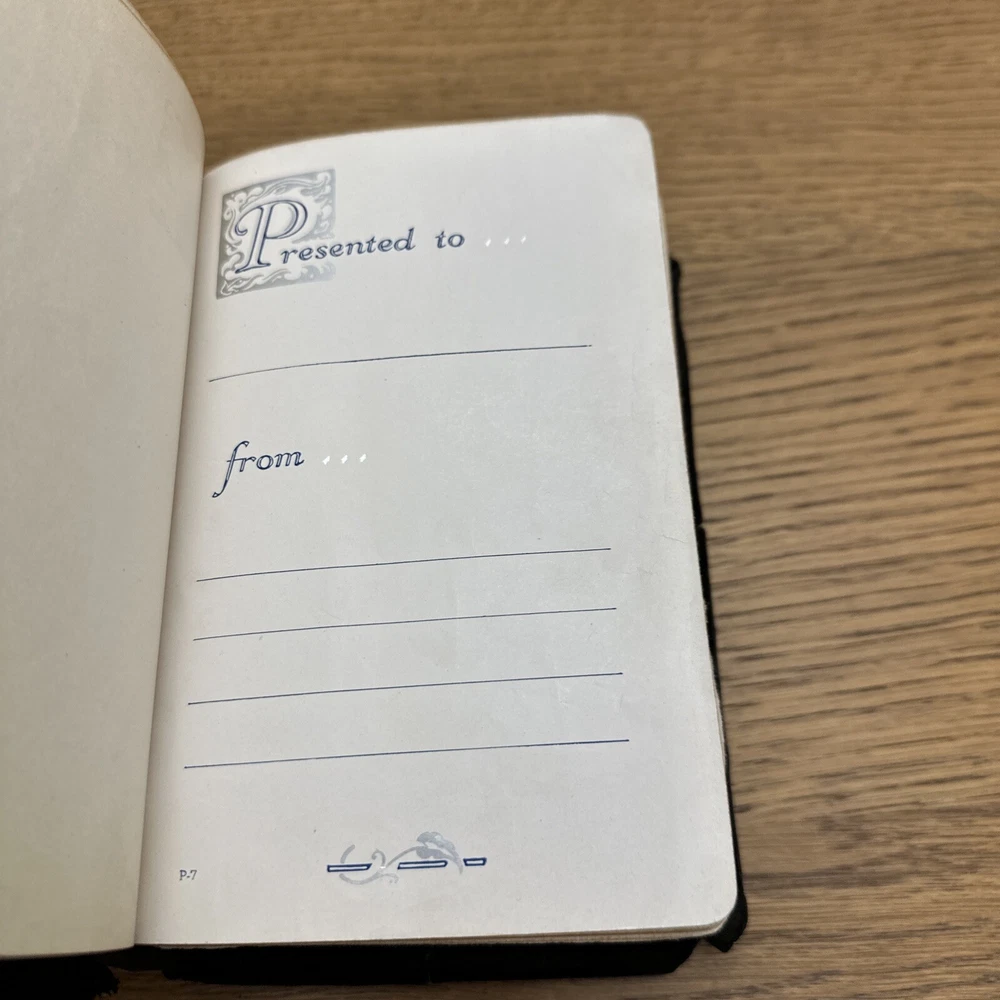 Presented to ...
from ...
P-7